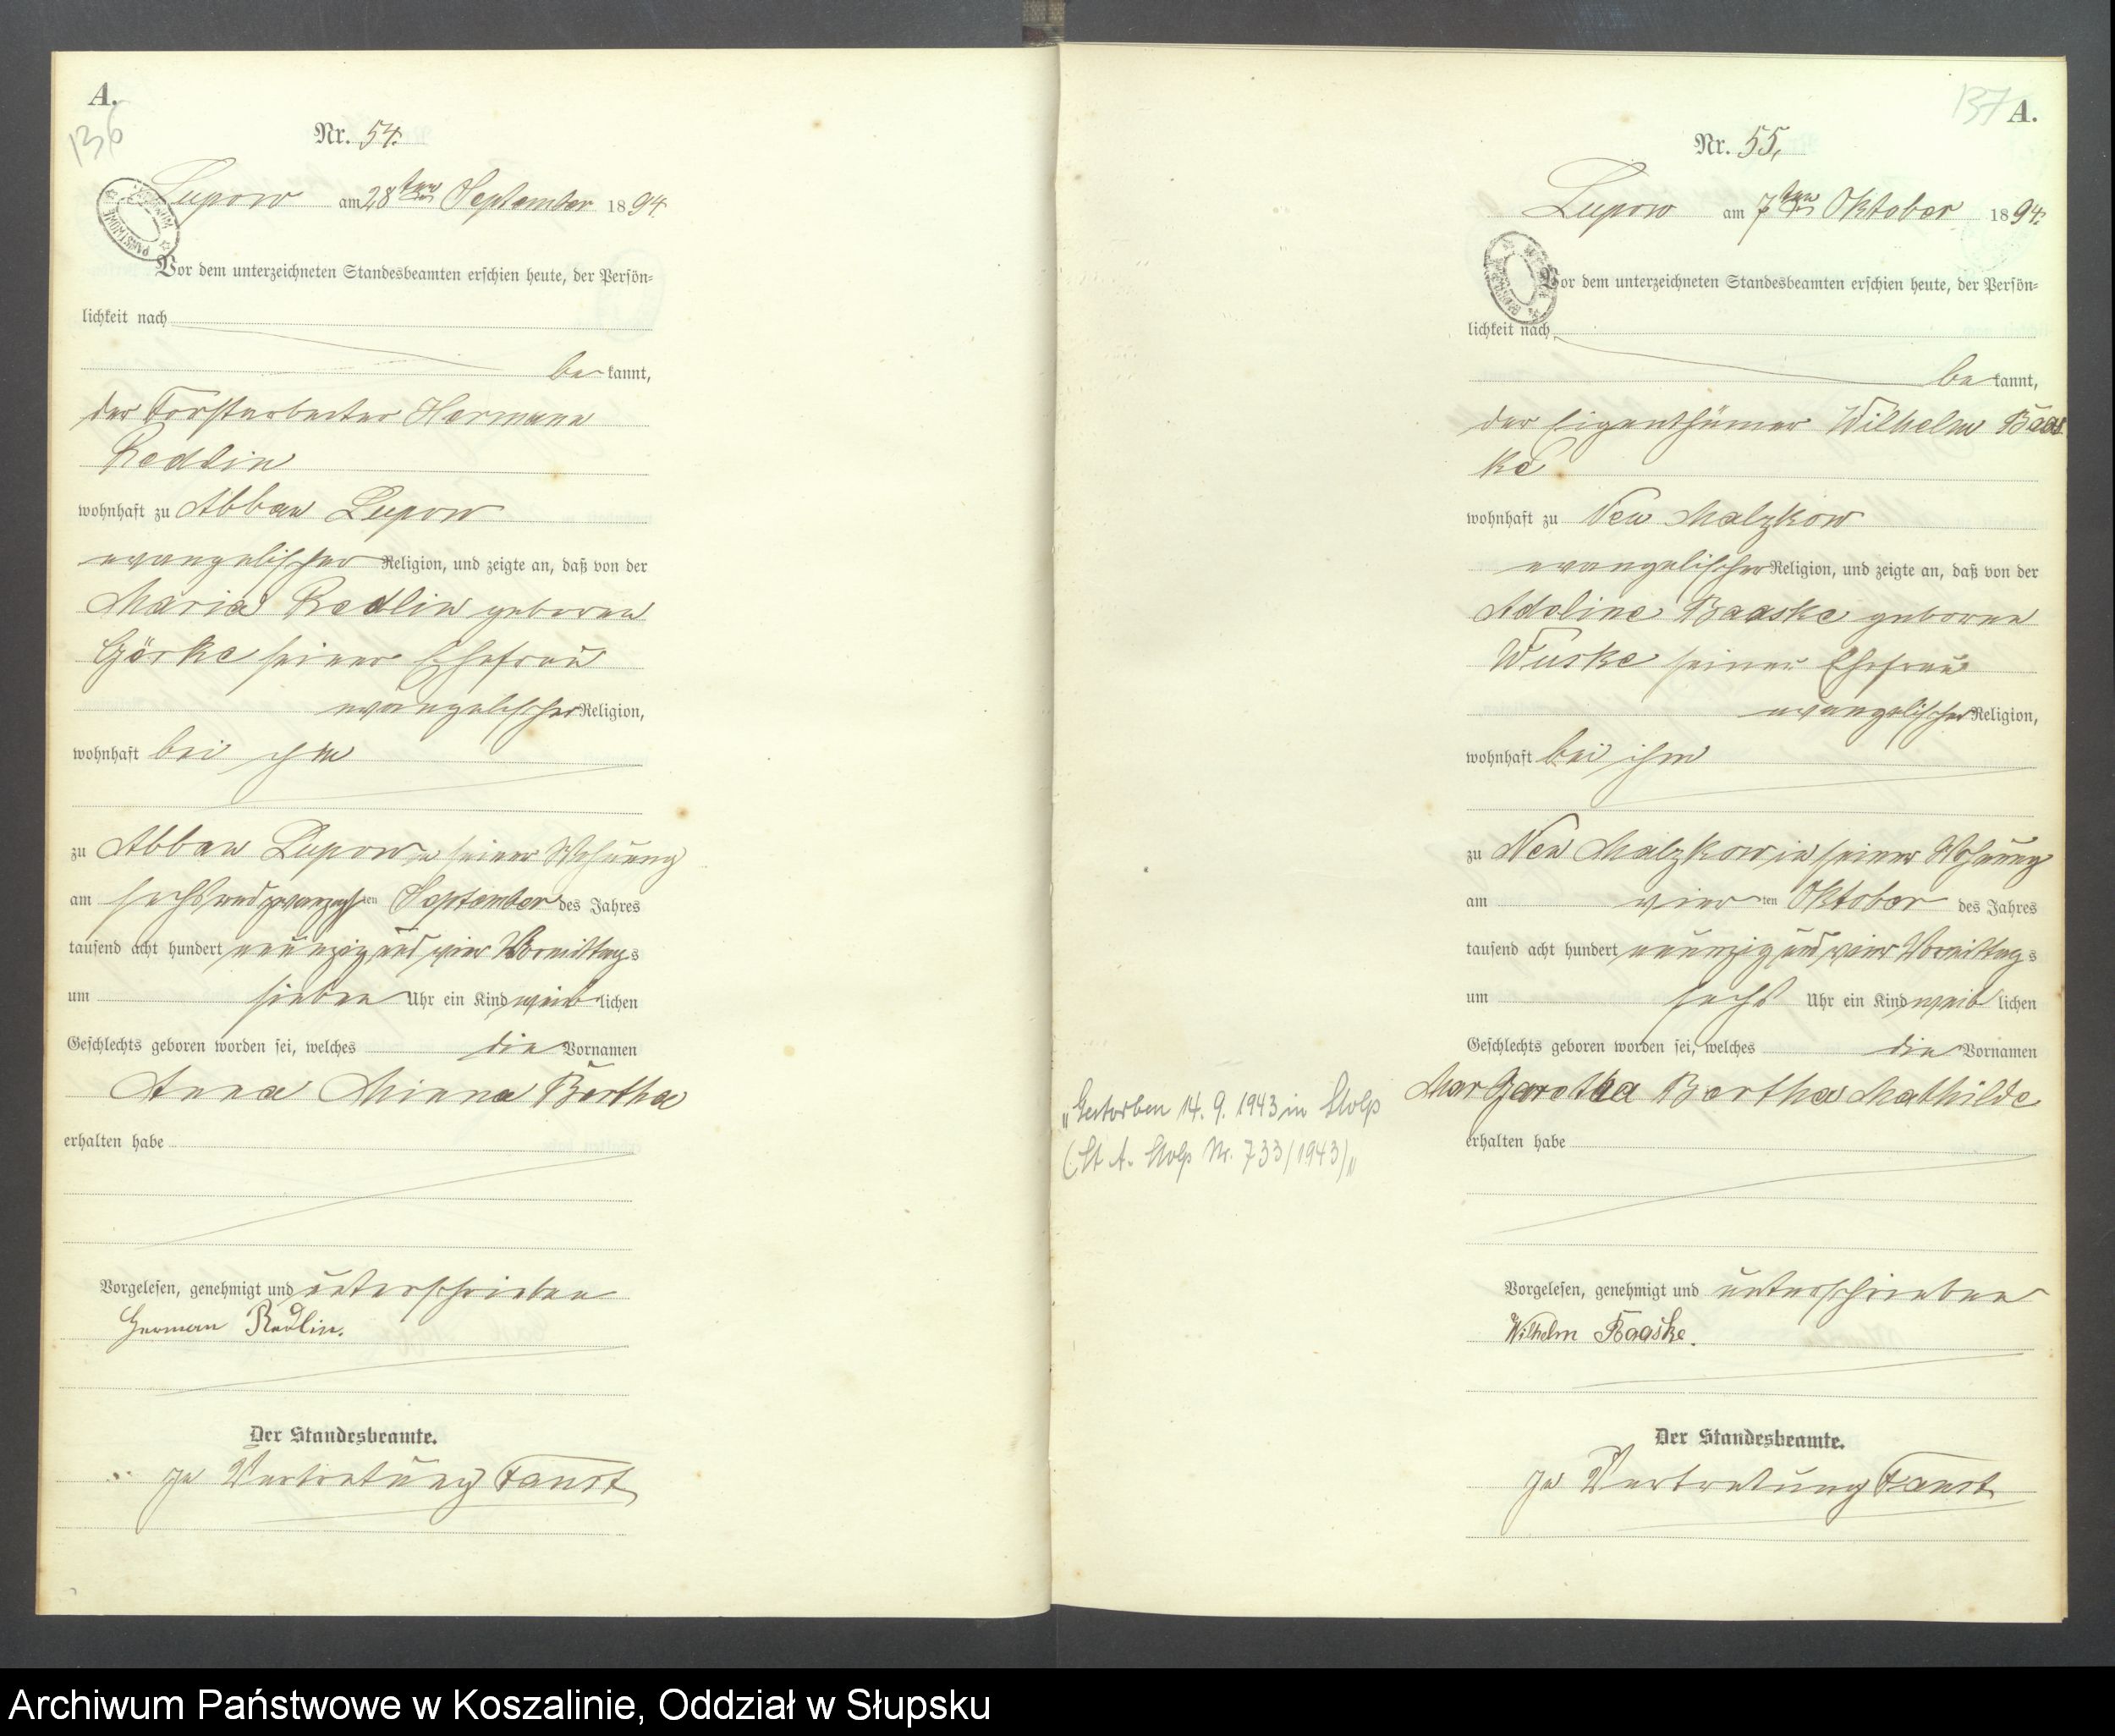 A.
136
Nr. 54.
Lupow am 28ten September 1894
Vor dem unterzeichneten Standesbeamten erschien heute, der Persön-
lichkeit nach
be kannt,
der Forstarbeiter Hermann
Redlin
wohnhaft zu Abbau Lupow
evangelischer Religion, und zeigte an, daß von der
Maria Redlin geboren
Görke seiner Ehefrau
evangelischer Religion,
wohnhaft bei ihm
zu Abbau Lupow in seiner Wohnung
am sechsundzwanzigsten September des Jahres
tausend acht hundert neunzig und vier Vormittags
um sieben Uhr ein Kind weiblichen
Geschlechts geboren worden sei, welches die Vornamen
Anna Minna Bertha
erhalten habe
Vorgelesen, genehmigt und unterschrieben
Herman Redlin.
Der Standesbeamte.
In Vertretung Faust
137
A.
Nr. 55.
Lupow am 7ten Oktober 1894.
Vor dem unterzeichneten Standesbeamten erschien heute, der Persön-
lichkeit nach
be kannt,
der Eigenthümer Wilhelm Baas
ke
wohnhaft zu Neu Malzkow
evangelischer Religion, und zeigte an, daß von der
Adeline Baaske geboren
Wuske seiner Ehefrau
evangelischer Religion,
wohnhaft bei ihm
zu Neu Malzkow in seiner Wohnung
am vierten Oktober des Jahres
tausend acht hundert neunzig und vier Vormittags
um sechs Uhr ein Kind weiblichen
Geschlechts geboren worden sei, welches die Vornamen
Margaretha Bertha Mathilde
erhalten habe
„Gestorben 14. 9. 1943 in Stolp
(St. A. Stolp Nr. 733/1943)„
Vorgelesen, genehmigt und unterschrieben
Wilhelm Baaske.
Der Standesbeamte.
In Vertretung Faust
Archiwum Państwowe w Koszalinie, Oddział w Słupsku